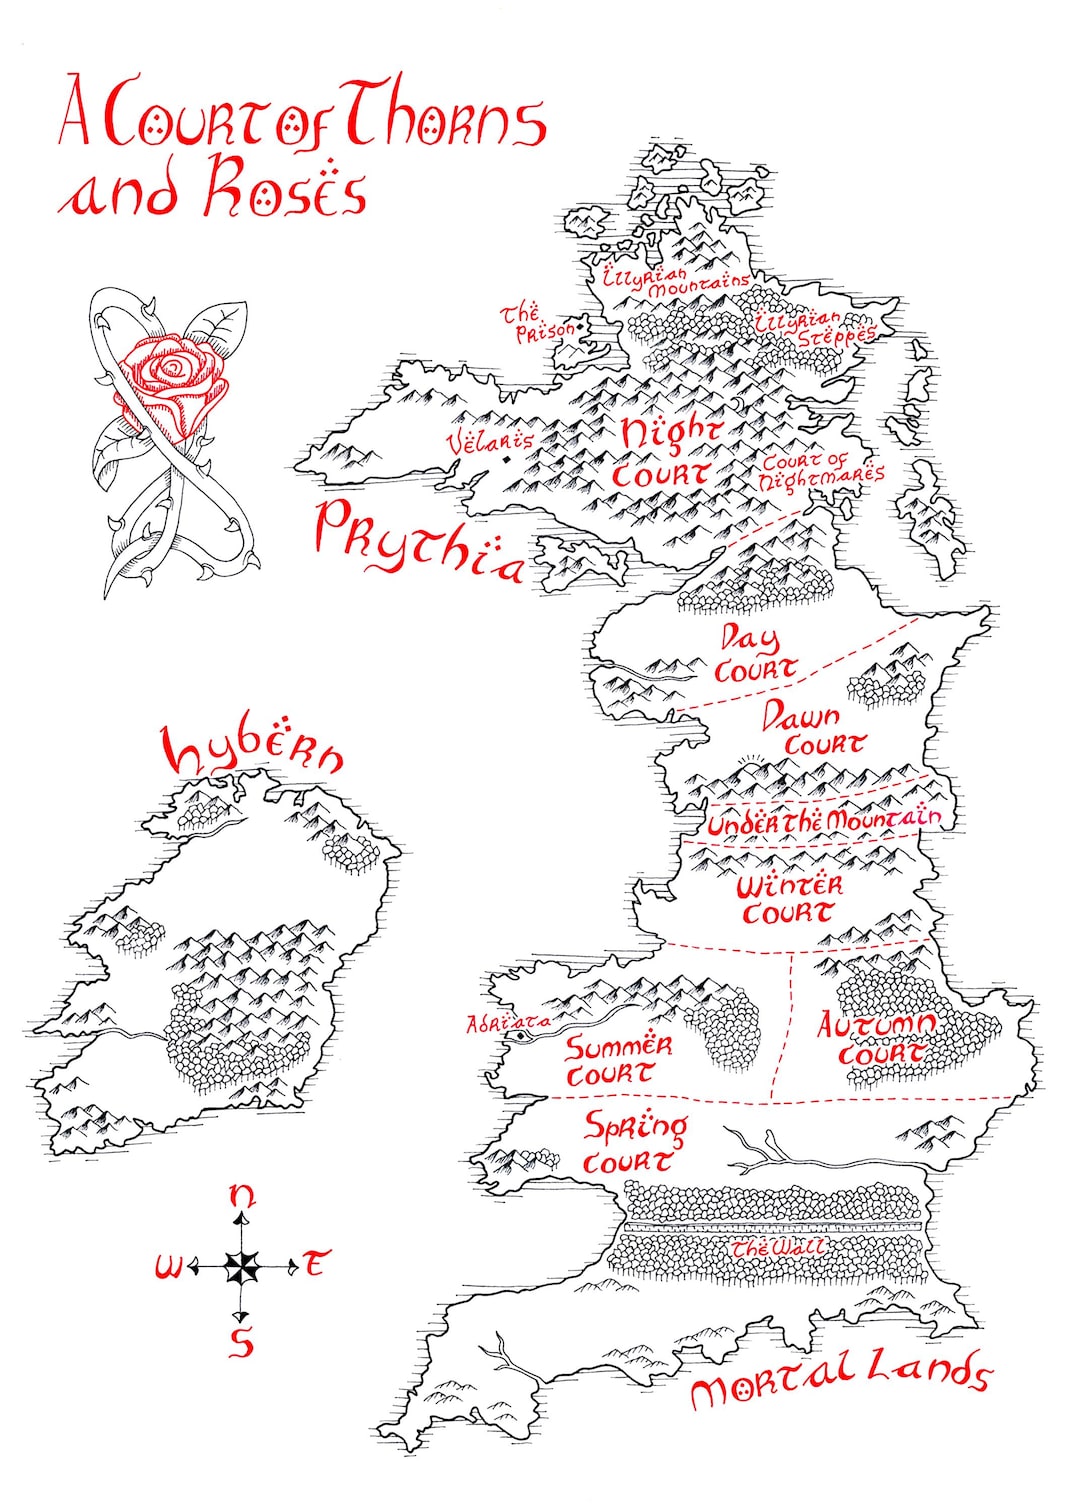 A Court of Thorns
and Roses
Illyrian
Mountains
The
Prison
Illyrian
Steppes
Velaris
Night
Court
Court of
Nightmares
Prythia
Day
Court
Dawn
Court
Hybern
Under the Mountain
Winter
Court
Adriata
Summer
Court
Autumn
Court
Spring
Court
N
W
E
S
The Wall
Mortal Lands